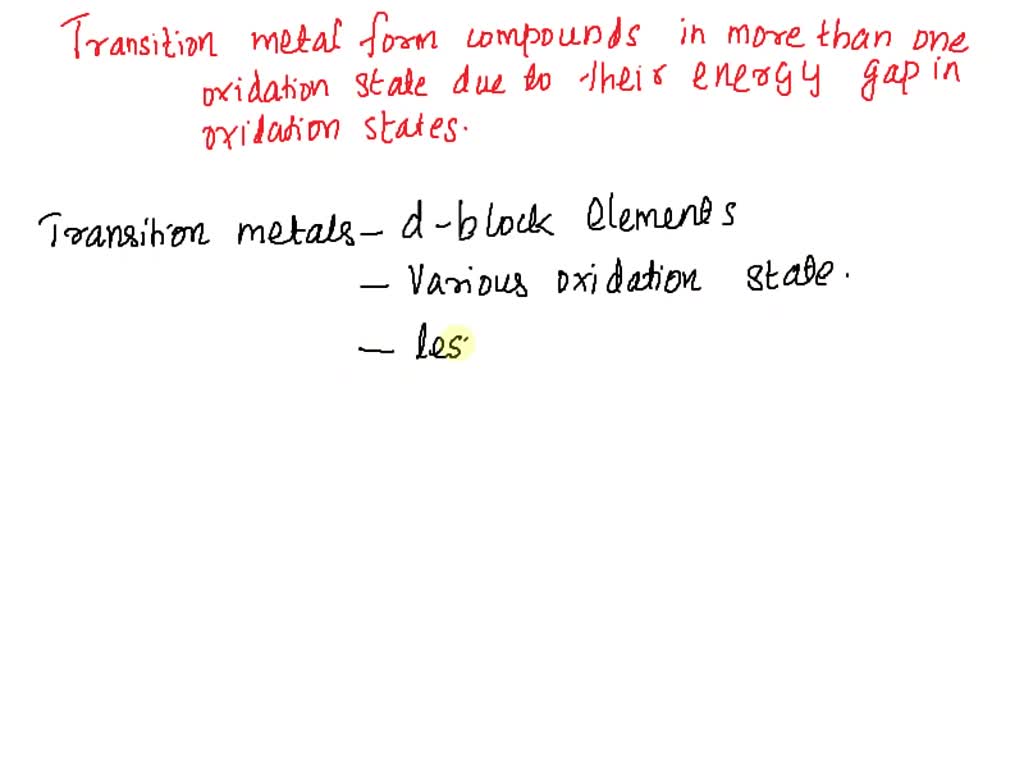 Transition metal form compounds in more than one
oxidation state due to their energy gap in
oxidation states.
Transition metals - d-block elements
- Various oxidation state.
- les